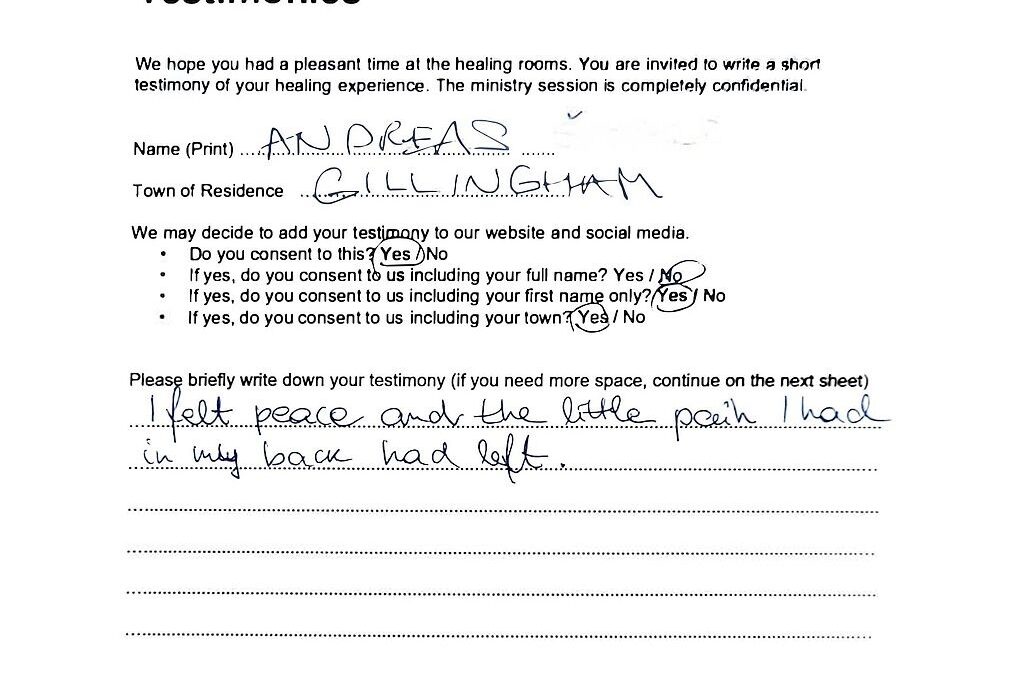 Testimonies
We hope you had a pleasant time at the healing rooms. You are invited to write a short
testimony of your healing experience. The ministry session is completely confidential.
Name (Print) ....ANDREAS.......
Town of Residence ...GILLINGHAM
We may decide to add your testimony to our website and social media.
• Do you consent to this? Yes / No
• If yes, do you consent to us including your full name? Yes / No
• If yes, do you consent to us including your first name only? Yes / No
• If yes, do you consent to us including your town? Yes / No
Please briefly write down your testimony (if you need more space, continue on the next sheet)
I felt peace and the little pain I had
in my back had left.